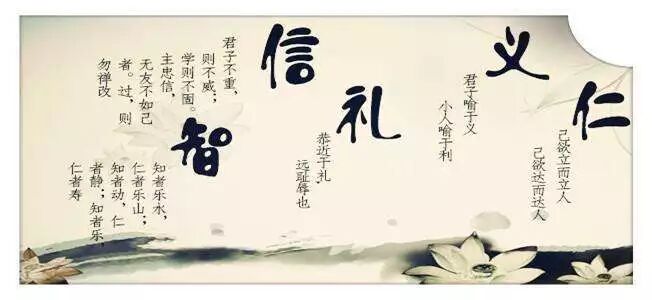 仁
己欲立而立人
己欲达而达人
义
君子喻于义
小人喻于利
礼
恭近于礼
远耻辱也
信
君子不重，
则不威；
学则不固。
主忠信，
无友不如己
者。过，则
勿禅改
智
知者乐水，
仁者乐山；
知者动，仁
者静；知者乐，
仁者寿